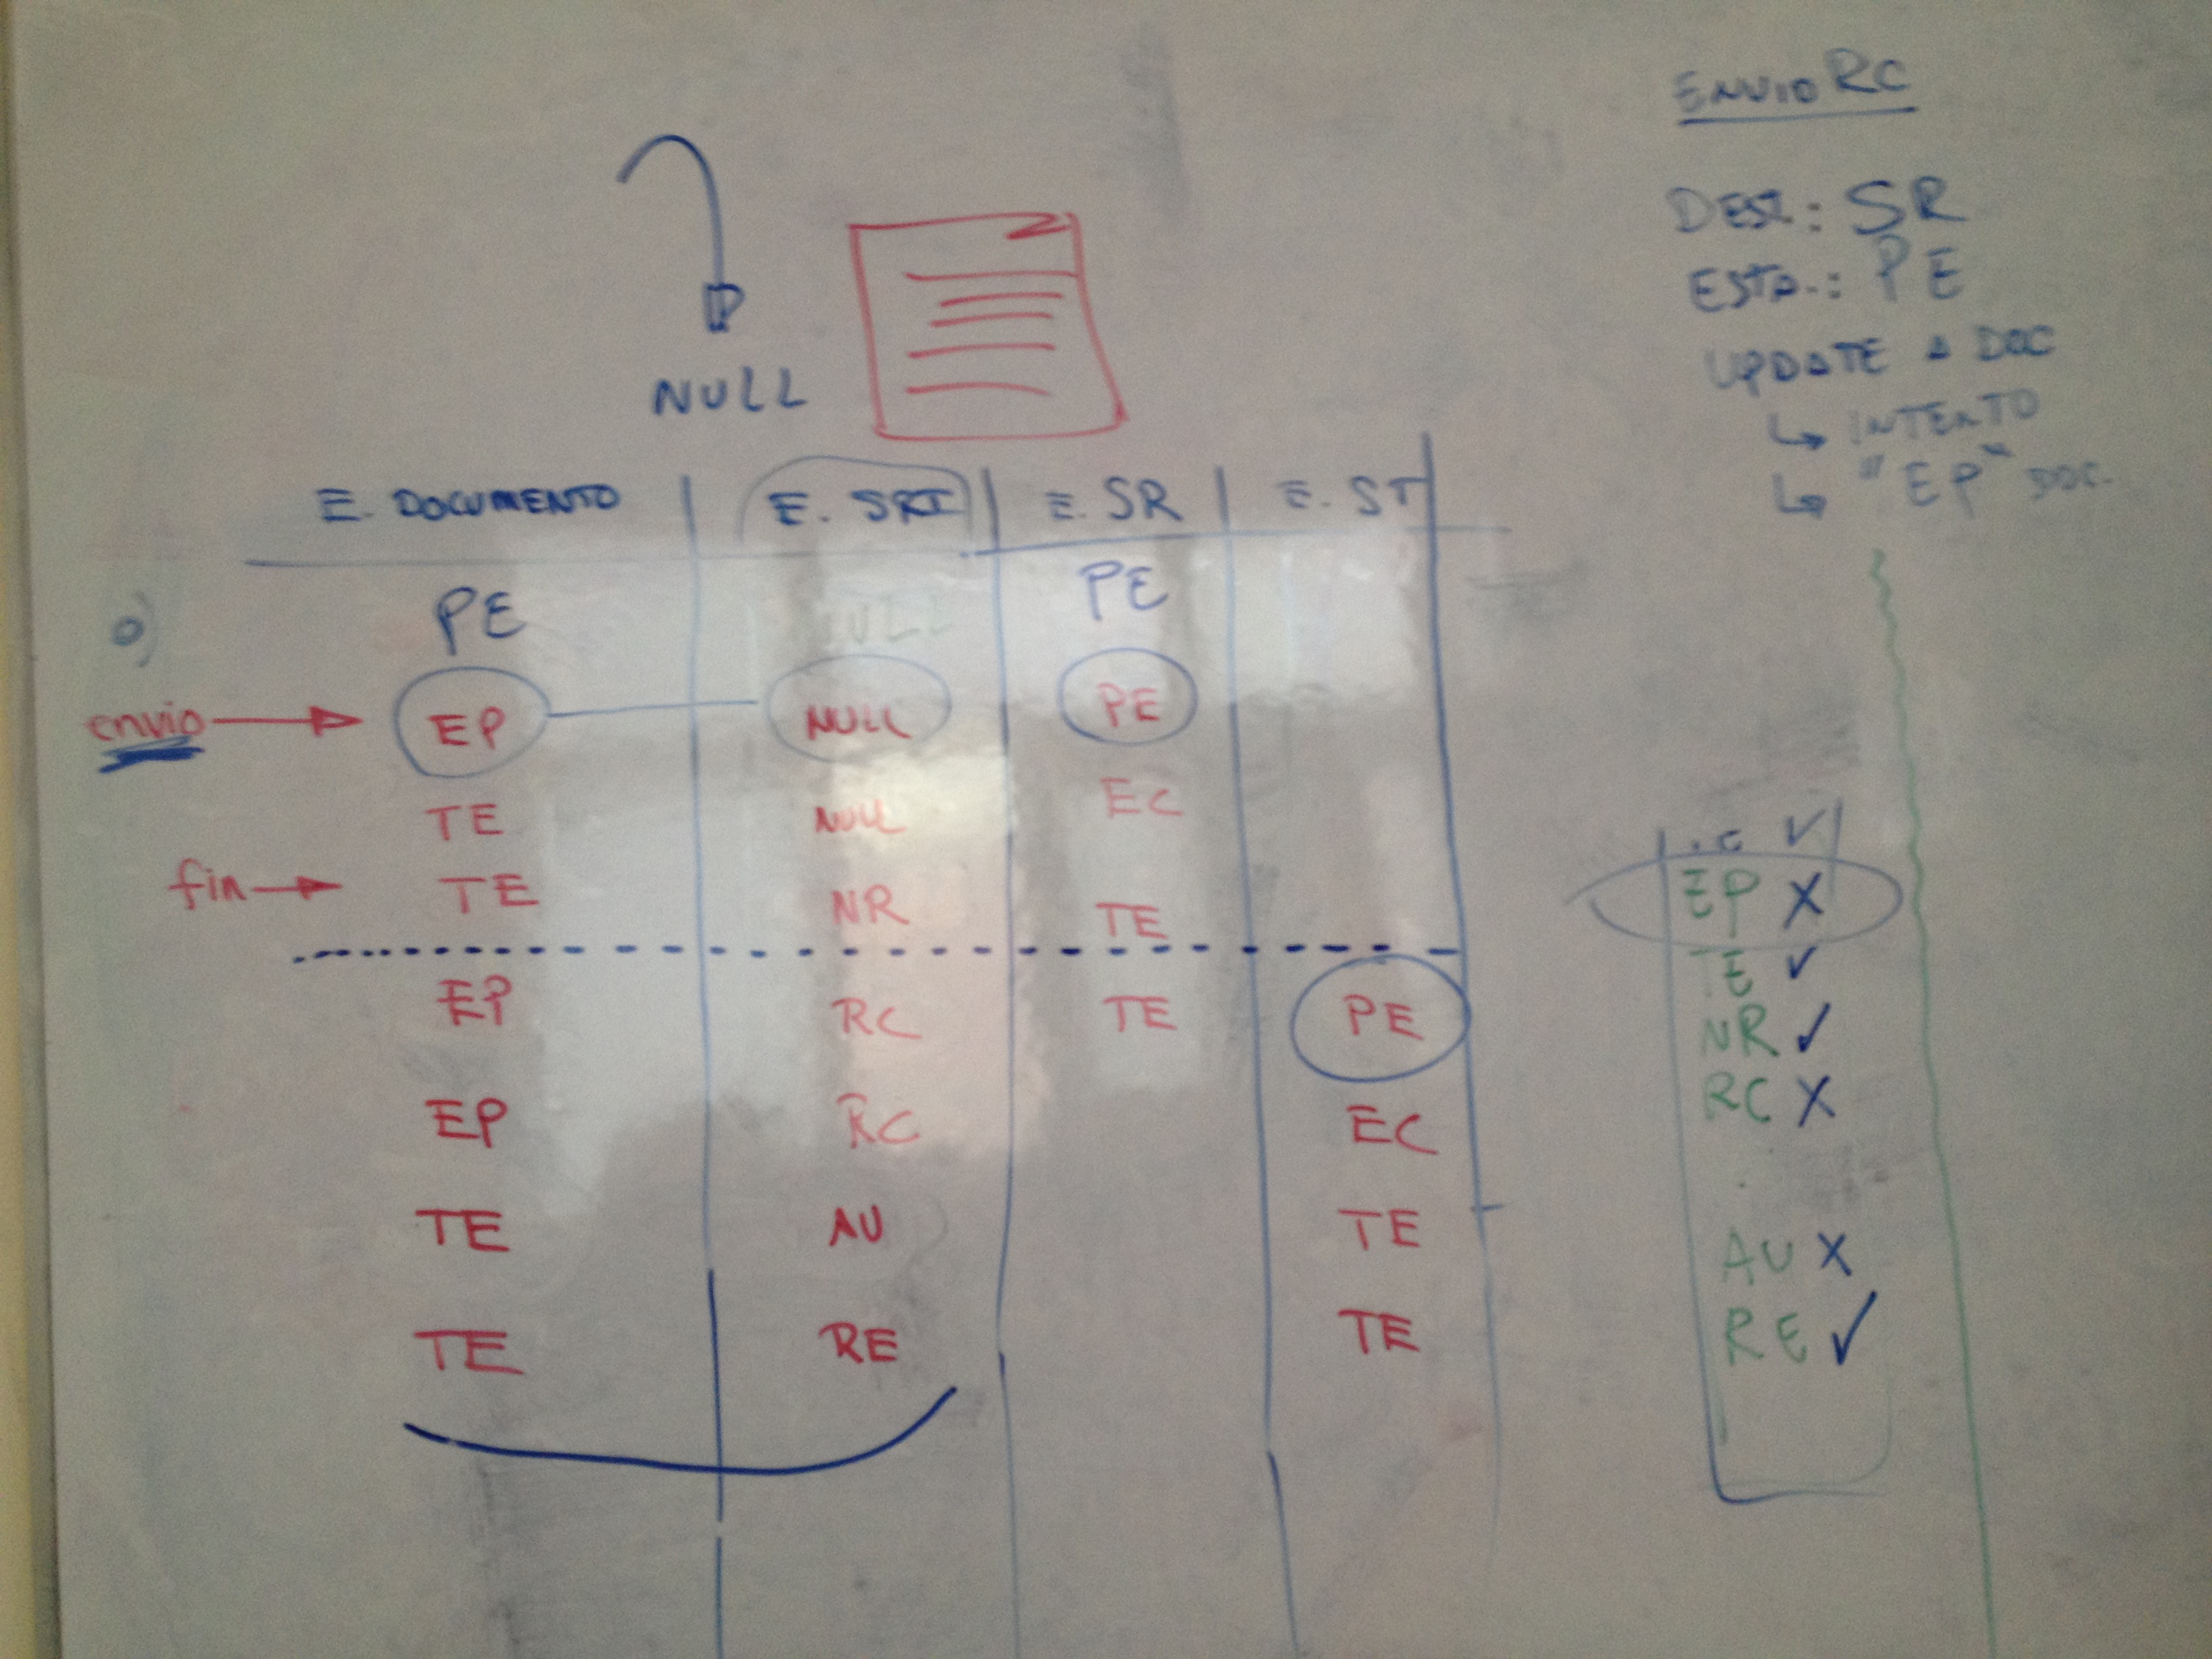 NULL
E. DOCUMENTO E. SRI E. SR E. ST
o) PE NULL PE
envio EP NULL PE
TE NULL EC
fin TE NR TE
EP RC TE PE
EP RC EC
TE AU TE
TE RE TE
ENVIO RC
DEST.: SR
ESTA.: PE
UPDATE A DOC
↳ INTENTO
↳ "EP" DOC.
✓
EP X
TE ✓
NR ✓
RC X
AU X
RE ✓